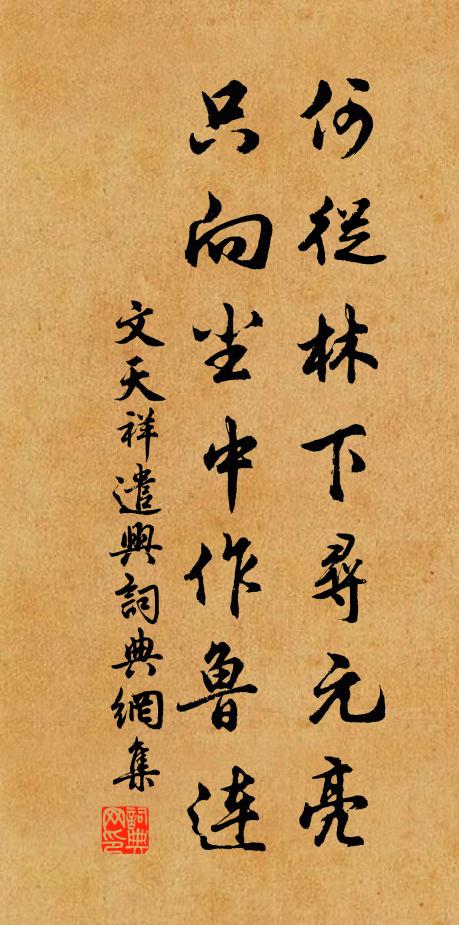 何從林下尋元亮
只向尘中作鲁连
文天祥遣興詞典網集
詞典网印